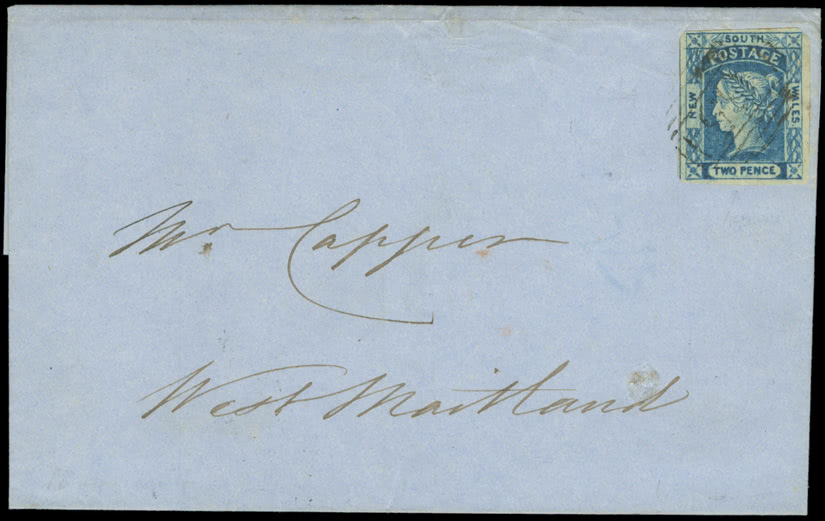 SOUTH
POSTAGE
NEW
WALES
TWO PENCE
Mr. Capper
West Maitland